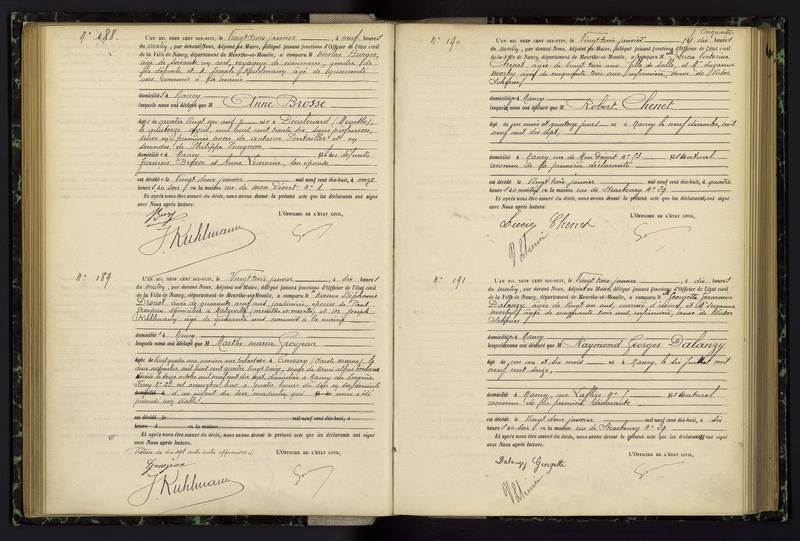 N° 188
L'an mil neuf cent dix-huit, le Vingt trois janvier, à neuf heures
du matin, par devant Nous, Adjoint au Maire, délégué faisant fonctions d'Officier de l'état civil
de la Ville de Nancy, département de Meurthe-et-Moselle, a comparu M Nicolas
âgé de soixante un ans, voyageur de commerce, gendre de
la défunte et M Joseph Kuhlmann âgé de quarante
ans commis à la mairie
domiciliés à Nancy
lesquels nous ont déclaré que M Anne Brosse
âgée de quatre vingt un ans, née à Dieulouard (Meurthe)
le quatorze avril, mil huit cent trente six, sans profession,
veuve en premières noces de Antoine et en
secondes de Philippe Pougnon
domiciliée à Nancy, fille des défunts
François Brosse et Anne Lemoine, son épouse
est décédée le vingt deux janvier mil neuf cent dix-huit, à onze
heures du soir en la maison rue de Mon Désert N° 1
Et après nous être assuré du décès, nous avons dressé le présent acte que les déclarants ont signé
avec Nous après lecture.
L'Officier de l'état civil,
J. Kuhlmann
N° 189
L'an mil neuf cent dix-huit, le Vingt trois janvier, à dix heures
du matin, par devant Nous, Adjoint au Maire, délégué faisant fonctions d'Officier de l'état civil
de la Ville de Nancy, département de Meurthe-et-Moselle, a comparu M Stéphanie
âgée de quarante neuf ans, jardinière, épouse de Paul
Grosjean domiciliée à Malzéville (Meurthe et Moselle) et M Joseph
Kuhlmann âgé de quarante ans commis à la mairie
domiciliés à Nancy
lesquels nous ont déclaré que M Marthe Maria Grosjean
âgée de vingt quatre ans, née à (Haute Marne) le
deux septembre mil huit cent quatre vingt treize, veuve de Henri
décédé le seize octobre mil neuf cent dix sept, domiciliée à Nancy rue
N° 22 est accouchée hier à quatre heures du soir en son domicile
d'un enfant du sexe masculin qui nous a été
présenté sans vie
est décédé le mil neuf cent dix-huit, à
heures en la maison
Et après nous être assuré du décès, nous avons dressé le présent acte que les déclarants ont signé
avec Nous après lecture.
L'Officier de l'état civil,
Grosjean
J. Kuhlmann
N° 190
L'an mil neuf cent dix-huit, le Vingt trois janvier, à dix heures
du matin, par devant Nous, Adjoint au Maire, délégué faisant fonctions d'Officier de l'état civil
de la Ville de Nancy, département de Meurthe-et-Moselle, a comparu M Lucie
Chenet, âgée de vingt trois ans, fille de salle, et M Suzanne
âgée de cinquante trois ans infirmière, veuve de Victor
domiciliées à Nancy
lesquelles nous ont déclaré que M Robert Chenet
âgé de un mois et quatorze jours né à Nancy le neuf décembre, mil
neuf cent dix sept,
domicilié à Nancy rue de Mon Désert N° 13 fils naturel
reconnu de la première déclarante
est décédé le Vingt trois janvier mil neuf cent dix-huit, à quatre
heures du matin en la maison rue de Strasbourg N° 29.
Et après nous être assuré du décès, nous avons dressé le présent acte que les déclarants ont signé
avec Nous après lecture.
L'Officier de l'état civil,
Lucie Chenet
N° 191
L'an mil neuf cent dix-huit, le Vingt trois janvier, à dix heures
du matin, par devant Nous, Adjoint au Maire, délégué faisant fonctions d'Officier de l'état civil
de la Ville de Nancy, département de Meurthe-et-Moselle, a comparu M Georgette Germaine
Dalanzy, âgée de vingt un ans, ouvrière d'usine, et M Suzanne
âgée de cinquante trois ans, infirmière, veuve de Victor
domiciliées à Nancy
lesquelles nous ont déclaré que M Raymond Georges Dalanzy
âgé de un an et six mois né à Nancy, le six juillet mil
neuf cent seize,
domicilié à Nancy, rue N° 1 fils naturel
reconnu de la première déclarante
est décédé le Vingt deux janvier mil neuf cent dix-huit, à dix
heures du soir en la maison rue de Strasbourg N° 29.
Et après nous être assuré du décès, nous avons dressé le présent acte que les déclarants ont signé
avec Nous après lecture.
L'Officier de l'état civil,
Dalanzy Georgette